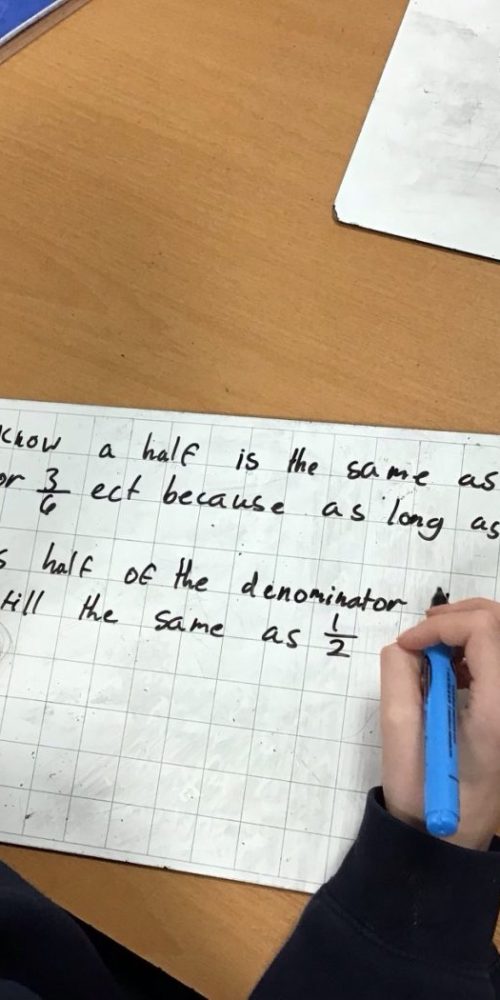 know a half is the same as
or 3/6 ect because as long as
half of the denominator
still the same as 1/2